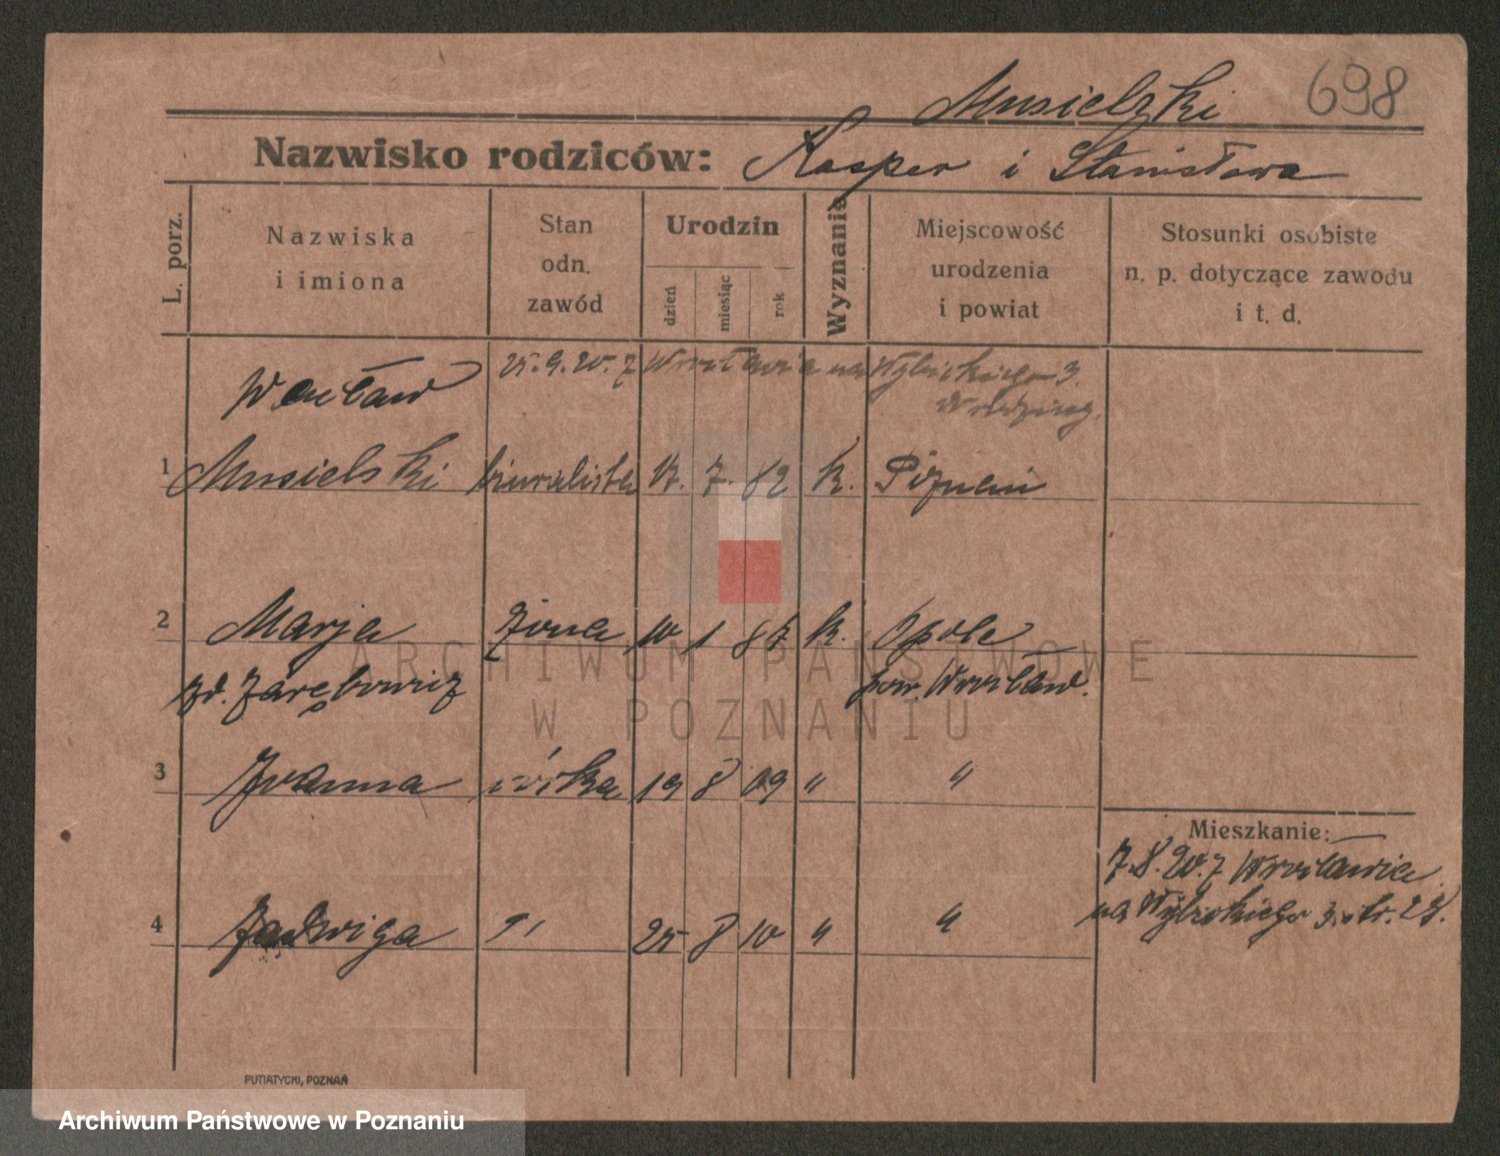 698
Musielski
Nazwisko rodziców: Kasper i Stanisława
L. porz.
Nazwiska i imiona
Stan odn. zawód
Urodzin
dzień
miesiąc
rok
Wyznanie
Miejscowość urodzenia i powiat
Stosunki osobiste n. p. dotyczące zawodu i t. d.
25.9.20. z Wrocławia na Wybickiego 3.
Wacław
1 Musielski biuralista 17. 7. 82 k. Poznań
2 Marja żona 10 1 87 k. Opole
zd. Zarębowicz pow. Wrocław.
3 Joanna córka 19 8 09 " "
Mieszkanie:
7.8.20. z Wrocławia
na Wybickiego 3.
4 Jadwiga " 25 8 10 " "
PUTIATYCKI, POZNAŃ
ARCHIWUM PAŃSTWOWE
W POZNANIU
Archiwum Państwowe w Poznaniu